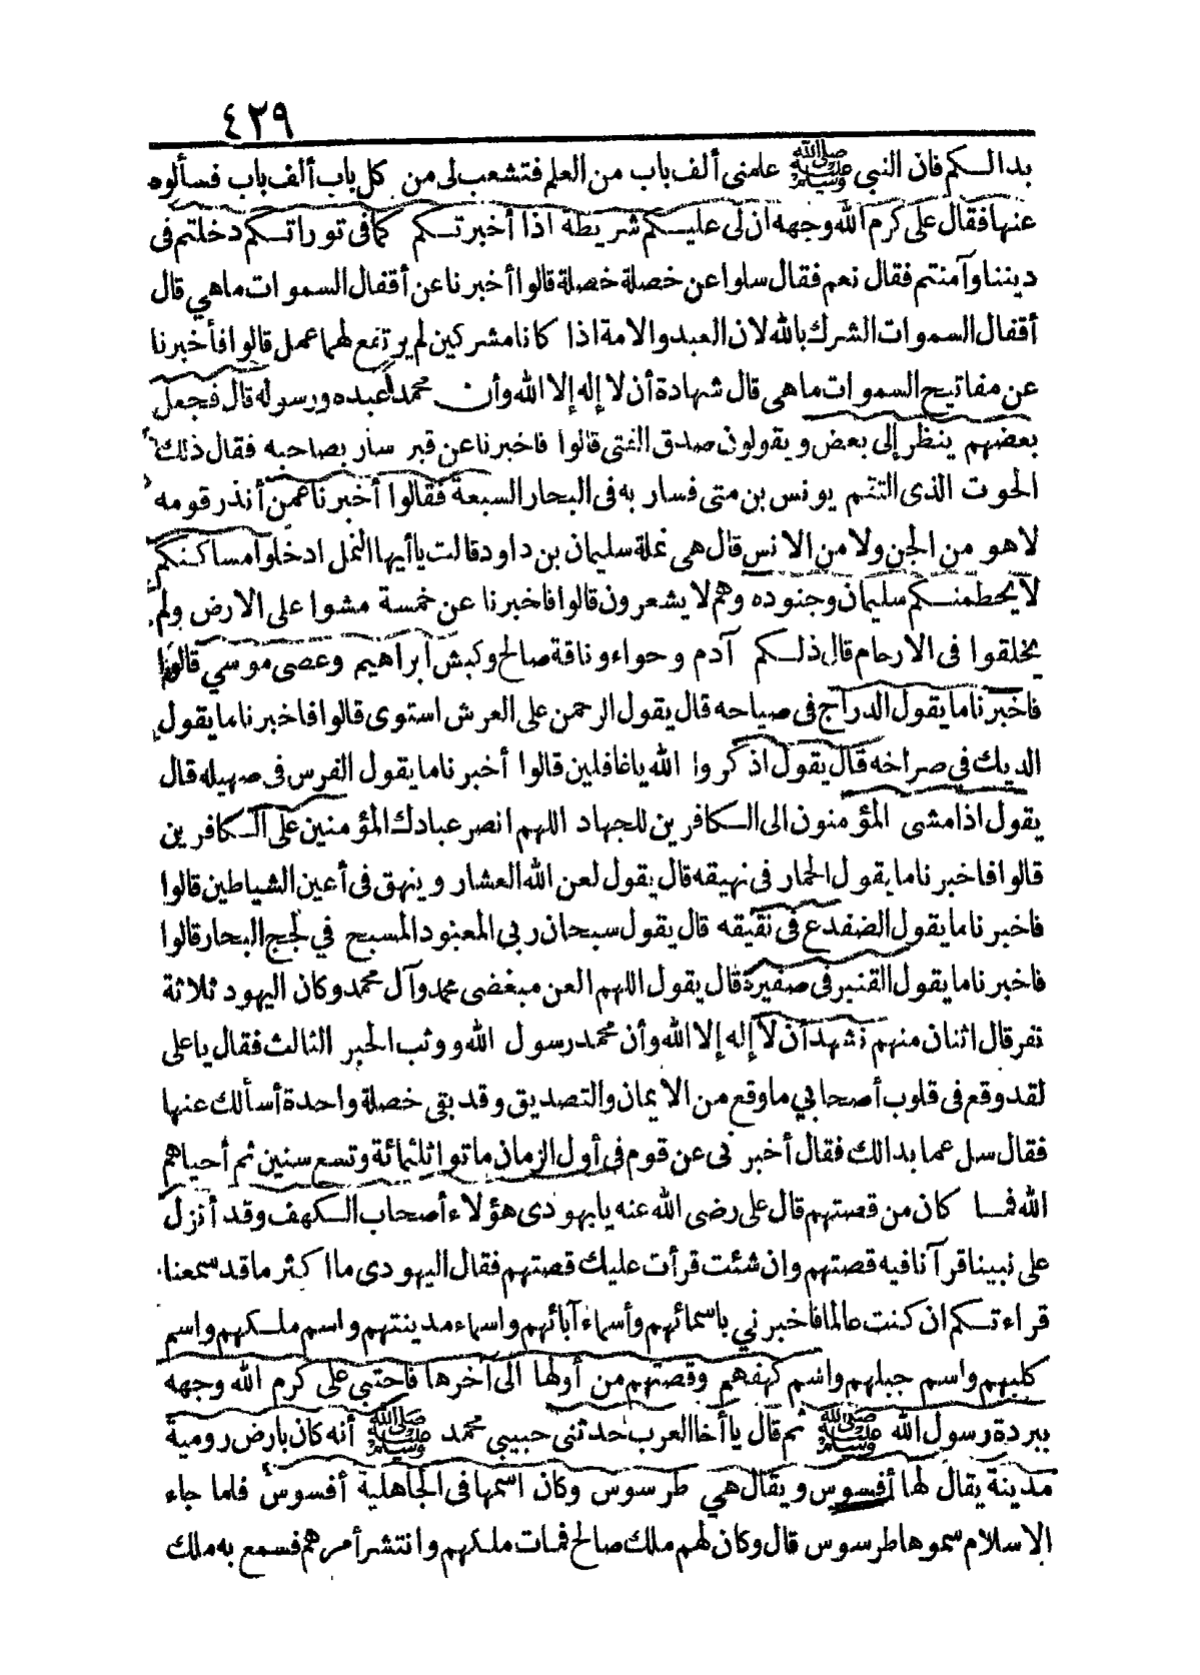 ٤٢٩
بدالكم فان النبي ﷺ علمني ألف باب من العلم فتشعب لى من كل باب ألف باب فسألوه
عنها فقال على كرم الله وجهه ان لى عليكم شريطة اذا أخبرتكم كما فى توراتكم دخلتم فى
ديننا وآمنتم فقال نعم فقال سلوا عن خصلة خصلة قالوا أخبرنا عن أقفال السموات ماهي قال
أقفال السموات الشرك بالله لان العبد والامة اذا كانا مشركين لم يرتفع لهما عمل قالوا فأخبرنا
عن مفاتيح السموات ماهى قال شهادة أن لا إله إلا الله وأن محمدا عبده ورسوله قال فجعل
بعضهم ينظر إلى بعض ويقولون صدق الفتى قالوا فاخبرنا عن قبر سار بصاحبه فقال ذلك
الحوت الذى التقم يونس بن متى فسار به فى البحار السبعة فقالوا أخبرنا عمن أنذر قومه
لا هو من الجن ولا من الانس قال هى نملة سليمان بن داود قالت ياأيها النمل ادخلوا مساكنكم
لا يحطمنكم سليمان وجنوده وهم لا يشعرون قالوا فاخبرنا عن خمسة مشوا على الارض ولم
يخلقوا فى الارحام قال ذلكم آدم وحواء وناقة صالح وكبش ابراهيم وعصى موسي قالوا
فاخبرنا ما يقول الدراج فى صياحه قال يقول الرحمن على العرش استوى قالوا فاخبرنا ما يقول
الديك في صراخه قال يقول اذكروا الله ياغافلين قالوا أخبرنا ما يقول الفرس فى صهيله قال
يقول اذا مشى المؤمنون الى الكافرين للجهاد اللهم انصر عبادك المؤمنين على الكافرين
قالوا فاخبرنا ما يقول الحمار فى نهيقه قال يقول لعن الله العشار وينهق فى أعين الشياطين قالوا
فاخبرنا ما يقول الضفدع فى نقيقه قال يقول سبحان ربي المعبود المسبح في لجج البحار قالوا
فاخبرنا ما يقول القنبر فى صفيره قال يقول اللهم العن مبغضى محمد وآل محمد وكان اليهود ثلاثة
نفر قال اثنان منهم نشهد أن لا إله إلا الله وأن محمد رسول الله ووثب الحبر الثالث فقال يا على
لقد وقع فى قلوب أصحابي ما وقع من الايمان والتصديق وقد بقى خصلة واحدة أسألك عنها
فقال سل عما بدالك فقال أخبرنى عن قوم فى أول الزمان ماتوا ثلثمائة وتسع سنين ثم أحياهم
الله فما كان من قصتهم قال على رضى الله عنه يا يهودى هؤلاء أصحاب الكهف وقد أنزل
على نبينا قرآنا فيه قصتهم وان شئت قرأت عليك قصتهم فقال اليهودى ما أكثر ما قد سمعنا
قراءتكم ان كنت عالما فاخبرني باسمائهم وأسماء آبائهم واسماء مدينتهم واسم ملكهم واسم
كلبهم واسم جبلهم واسم كهفهم وقصتهم من أولها الى آخرها فاحتبى على كرم الله وجهه
ببردة رسول الله ﷺ ثم قال يا أخا العرب حدثنى حبيبي محمد ﷺ أنه كان بارض رومية
مدينة يقال لها أفسوس ويقال هي طرسوس وكان اسمها فى الجاهلية أفسوس فلما جاء
الاسلام سموها طرسوس قال وكان لهم ملك صالح فمات ملكهم وانتشر أمرهم فسمع به ملك